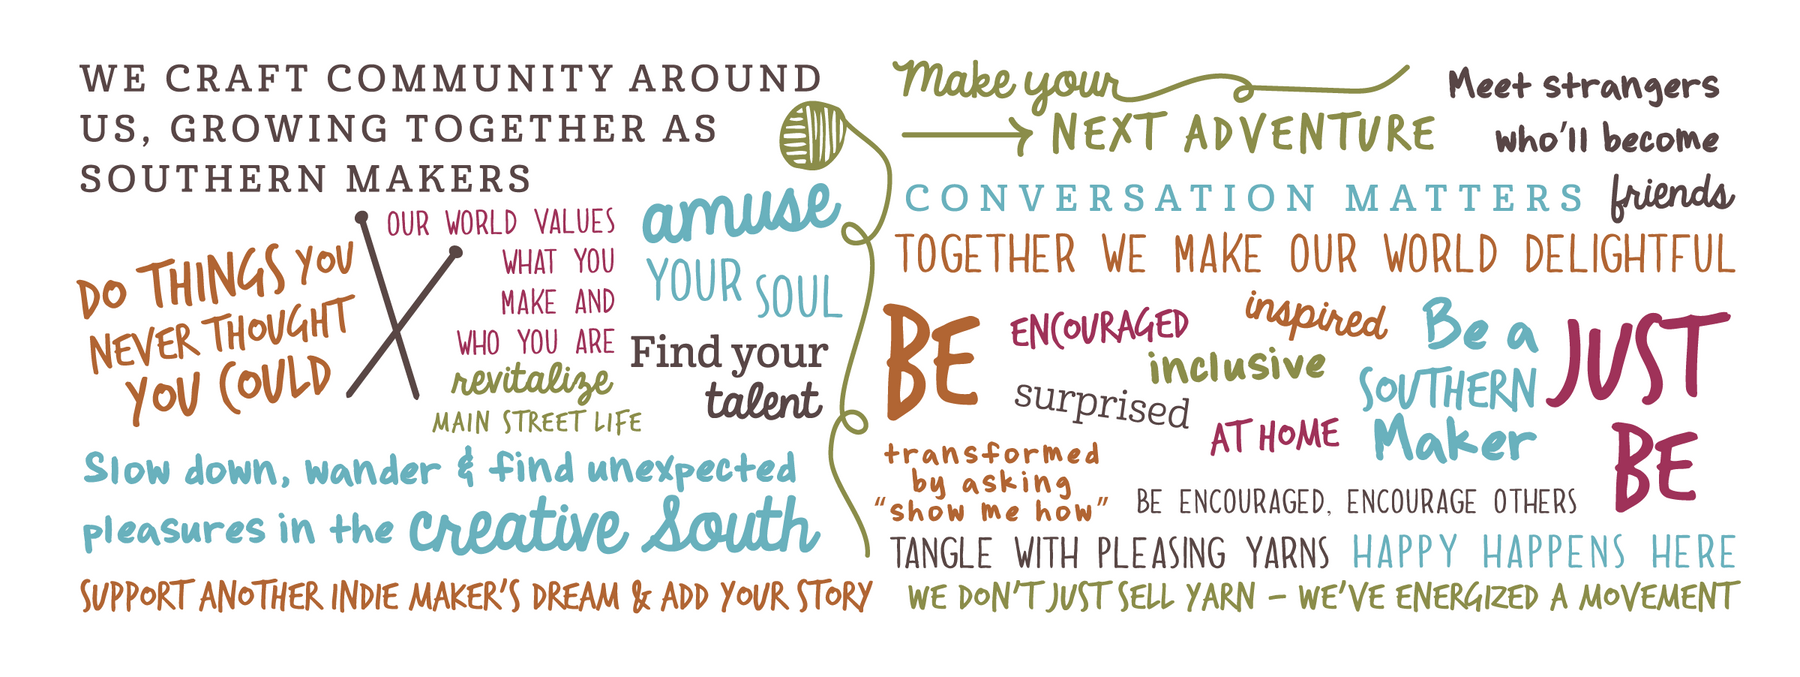 WE CRAFT COMMUNITY AROUND
US, GROWING TOGETHER AS
SOUTHERN MAKERS
DO THINGS YOU
NEVER THOUGHT
YOU COULD
OUR WORLD VALUES
WHAT YOU
MAKE AND
WHO YOU ARE
revitalize
MAIN STREET LIFE
amuse
YOUR SOUL
Find your
talent
Slow down, wander & find unexpected
pleasures in the creative South
SUPPORT ANOTHER INDIE MAKER'S DREAM & ADD YOUR STORY
Make your
NEXT ADVENTURE
Meet strangers
who'll become
friends
CONVERSATION MATTERS
TOGETHER WE MAKE OUR WORLD DELIGHTFUL
BE
ENCOURAGED
inspired
inclusive
surprised
AT HOME
Be a
SOUTHERN
Maker
JUST
BE
transformed
by asking
"show me how"
BE ENCOURAGED, ENCOURAGE OTHERS
TANGLE WITH PLEASING YARNS
HAPPY HAPPENS HERE
WE DON'T JUST SELL YARN – WE'VE ENERGIZED A MOVEMENT